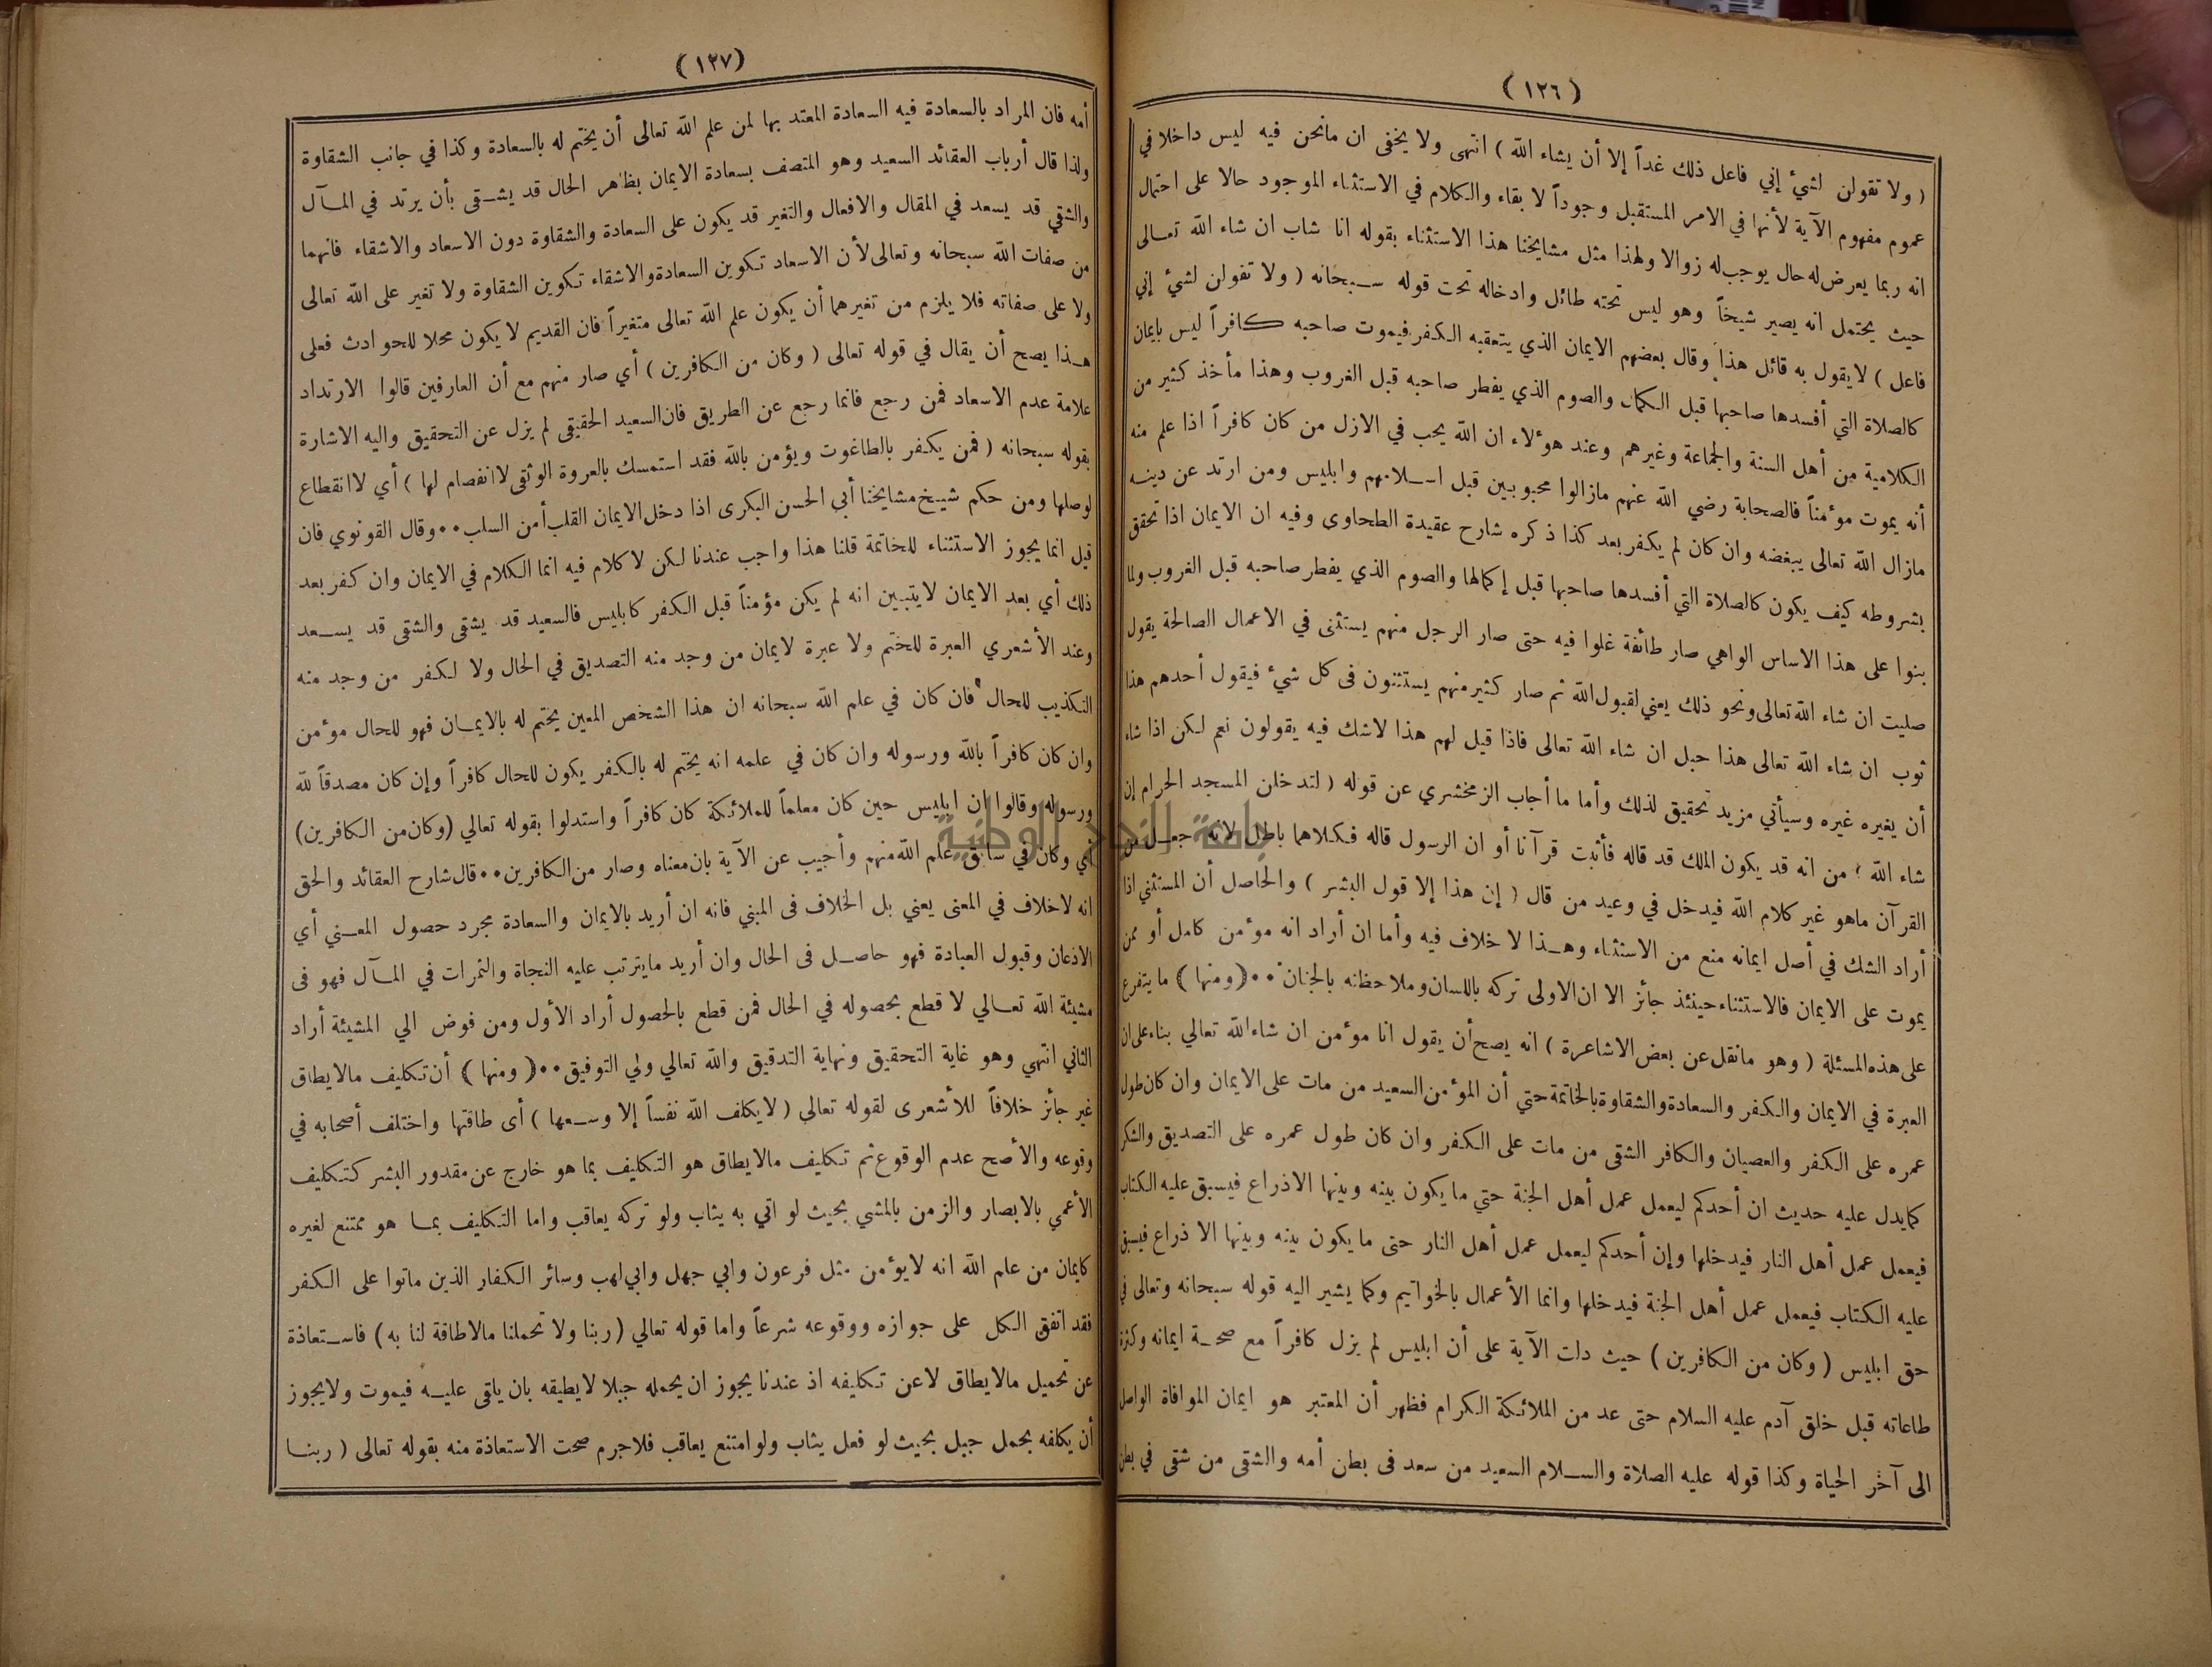 (١٢٦)
( ولا تقولن لشيء إني فاعل ذلك غداً إلا أن يشاء الله ) انتهى ولا يخفى ان مانحن فيه ليس داخلا في
عموم مفهوم الآية لأنها في الامر المستقبل وجوداً لا بقاء والكلام في الاستثناء الموجود حالا على احتمال
انه ربما يعرض له حال يوجب له زوالا ولهذا مثل مشايخنا هذا الاستثناء بقوله انا شاب ان شاء الله تعالى
حيث يحتمل انه يصير شيخاً وهو ليس تحته طائل وادخاله تحت قوله سبحانه ( ولا تقولن لشيء إني
فاعل ) لا يقول به قائل هذا وقال بعضهم الايمان الذي يتعقبه الكفر فيموت صاحبه كافراً ليس بايمان
كالصلاة التي أفسدها صاحبها قبل الكمال والصوم الذي يفطر صاحبه قبل الغروب وهذا مأخذ كثير من
الكلامية من أهل السنة والجماعة وغيرهم وعند هؤلاء ان الله يحب في الازل من كان كافراً اذا علم منه
أنه يموت مؤمناً فالصحابة رضي الله عنهم مازالوا محبوبين قبل اسلامهم وابليس ومن ارتد عن دينه
مازال الله تعالى يبغضه وان كان لم يكفر بعد كذا ذكره شارح عقيدة الطحاوى وفيه ان الايمان اذا تحقق
بشروطه كيف يكون كالصلاة التي أفسدها صاحبها قبل إكمالها والصوم الذي يفطر صاحبه قبل الغروب ولما
بنوا على هذا الاساس الواهي صار طائفة غلوا فيه حتى صار الرجل منهم يستثنى في الاعمال الصالحة يقول
صليت ان شاء الله تعالى ونحو ذلك يعني لقبول الله ثم صار كثير منهم يستثنون فى كل شيء فيقول أحدهم هذا
ثوب ان شاء الله تعالى هذا حبل ان شاء الله تعالى فاذا قيل لهم هذا لاشك فيه يقولون نعم لكن اذا شاء
أن يغيره غيره وسيأتي مزيد تحقيق لذلك وأما ما أجاب الزمخشري عن قوله ( لتدخلن المسجد الحرام إن
شاء الله ) من انه قد يكون الملك قد قاله فأثبت قرآنا أو ان الرسول قاله فكلاهما باطل لانه جعل من
القرآن ماهو غير كلام الله فيدخل في وعيد من قال ( إن هذا إلا قول البشر ) والحاصل أن المستثني اذا
أراد الشك في أصل ايمانه منع من الاستثناء وهذا لا خلاف فيه وأما ان أراد انه مؤمن كامل أو ممن
يموت على الايمان فالاستثناء حينئذ جائز الا ان الاولى تركه باللسان وملاحظته بالجنان ٠٠ ( ومنها ) ما يتفرع
على هذه المسئلة ( وهو مانقل عن بعض الاشاعرة ) انه يصح أن يقول انا مؤمن ان شاء الله تعالي بناء على ان
العبرة في الايمان والكفر والسعادة والشقاوة بالخاتمة حتي أن المؤمن السعيد من مات على الايمان وان كان طول
عمره على الكفر والعصيان والكافر الشقى من مات على الكفر وان كان طول عمره على التصديق والشكر
كما يدل عليه حديث ان أحدكم ليعمل عمل أهل الجنة حتي ما يكون بينه وبينها الا ذراع فيسبق عليه الكتاب
فيعمل عمل أهل النار فيدخلها وإن أحدكم ليعمل عمل أهل النار حتى ما يكون بينه وبينها الا ذراع فيسبق
عليه الكتاب فيعمل عمل أهل الجنة فيدخلها وانما الأعمال بالخواتيم وكما يشير اليه قوله سبحانه وتعالى في
حق ابليس ( وكان من الكافرين ) حيث دلت الآية على أن ابليس لم يزل كافراً مع صحة ايمانه وكثرة
طاعاته قبل خلق آدم عليه السلام حتى عد من الملائكة الكرام فظهر أن المعتبر هو ايمان الموافاة الواصل
الى آخر الحياة وكذا قوله عليه الصلاة والسلام السعيد من سعد فى بطن أمه والشقى من شقى في بطن
(١٢٧)
أمه فان المراد بالسعادة فيه السعادة المعتد بها لمن علم الله تعالى أن يختم له بالسعادة وكذا في جانب الشقاوة
ولذا قال أرباب العقائد السعيد وهو المتصف بسعادة الايمان بظاهر الحال قد يشقى بأن يرتد في المآل
والشقي قد يسعد في المقال والافعال والتغير قد يكون على السعادة والشقاوة دون الاسعاد والاشقاء فانهما
من صفات الله سبحانه وتعالى لأن الاسعاد تكوين السعادة والاشقاء تكوين الشقاوة ولا تغير على الله تعالى
ولا على صفاته فلا يلزم من تغيرهما أن يكون علم الله تعالى متغيراً فان القديم لا يكون محلا للحوادث فعلى
هذا يصح أن يقال في قوله تعالى ( وكان من الكافرين ) أي صار منهم مع أن العارفين قالوا الارتداد
علامة عدم الاسعاد فمن رجع فانما رجع عن الطريق فان السعيد الحقيقى لم يزل عن التحقيق واليه الاشارة
بقوله سبحانه ( فمن يكفر بالطاغوت ويؤمن بالله فقد استمسك بالعروة الوثقى لا انفصام لها ) أي لا انقطاع
لوصلها ومن حكم شيخ مشايخنا أبي الحسن البكرى اذا دخل الايمان القلب أمن السلب ٠٠ وقال القونوي فان
قيل انما يجوز الاستثناء للخاتمة قلنا هذا واجب عندنا لكن لا كلام فيه انما الكلام في الايمان وان كفر بعد
ذلك أي بعد الايمان لايتبين انه لم يكن مؤمناً قبل الكفر كابليس فالسعيد قد يشقى والشقى قد يسعد
وعند الأشعري العبرة للختم ولا عبرة لايمان من وجد منه التصديق في الحال ولا لكفر من وجد منه
التكذيب للحال فان كان في علم الله سبحانه ان هذا الشخص المعين يختم له بالايمان فهو للحال مؤمن
وان كان كافراً بالله ورسوله وان كان في علمه انه يختم له بالكفر يكون للحال كافراً وإن كان مصدقاً لله
ورسوله وقالوا ان ابليس حين كان معلماً للملائكة كان كافراً واستدلوا بقوله تعالي (وكان من الكافرين)
أي وكان في سابق علم الله منهم وأجيب عن الآية بان معناه وصار من الكافرين ٠٠ قال شارح العقائد والحق
انه لاخلاف في المعنى يعني بل الخلاف فى المبني فانه ان أريد بالايمان والسعادة مجرد حصول المعني أي
الاذعان وقبول العبادة فهو حاصل فى الحال وان أريد مايترتب عليه النجاة والثمرات في المآل فهو فى
مشيئة الله تعالي لا قطع بحصوله في الحال فمن قطع بالحصول أراد الأول ومن فوض الي المشيئة أراد
الثاني انتهي وهو غاية التحقيق ونهاية التدقيق والله تعالي ولي التوفيق ٠٠ ( ومنها ) أن تكليف مالا يطاق
غير جائز خلافاً للأشعرى لقوله تعالى ( لا يكلف الله نفساً إلا وسعها ) أى طاقتها واختلف أصحابه في
وقوعه والأصح عدم الوقوع ثم تكليف مالا يطاق هو التكليف بما هو خارج عن مقدور البشر كتكليف
الأعمي بالابصار والزمن بالمشي بحيث لو اتي به يثاب ولو تركه يعاقب واما التكليف بما هو ممتنع لغيره
كايمان من علم الله انه لايؤمن مثل فرعون وابي جهل وابي لهب وسائر الكفار الذين ماتوا على الكفر
فقد اتفق الكل على جوازه ووقوعه شرعاً واما قوله تعالي (ربنا ولا تحملنا مالا طاقة لنا به) فاستعاذة
عن تحميل مالا يطاق لاعن تكليفه اذ عندنا يجوز ان يحمله جبلا لا يطيقه بان يلقى عليه فيموت ولا يجوز
أن يكلفه بحمل جبل بحيث لو فعل يثاب ولو امتنع يعاقب فلاجرم صحت الاستعاذة منه بقوله تعالى ( ربنا
جامعة النجاح الوطنية